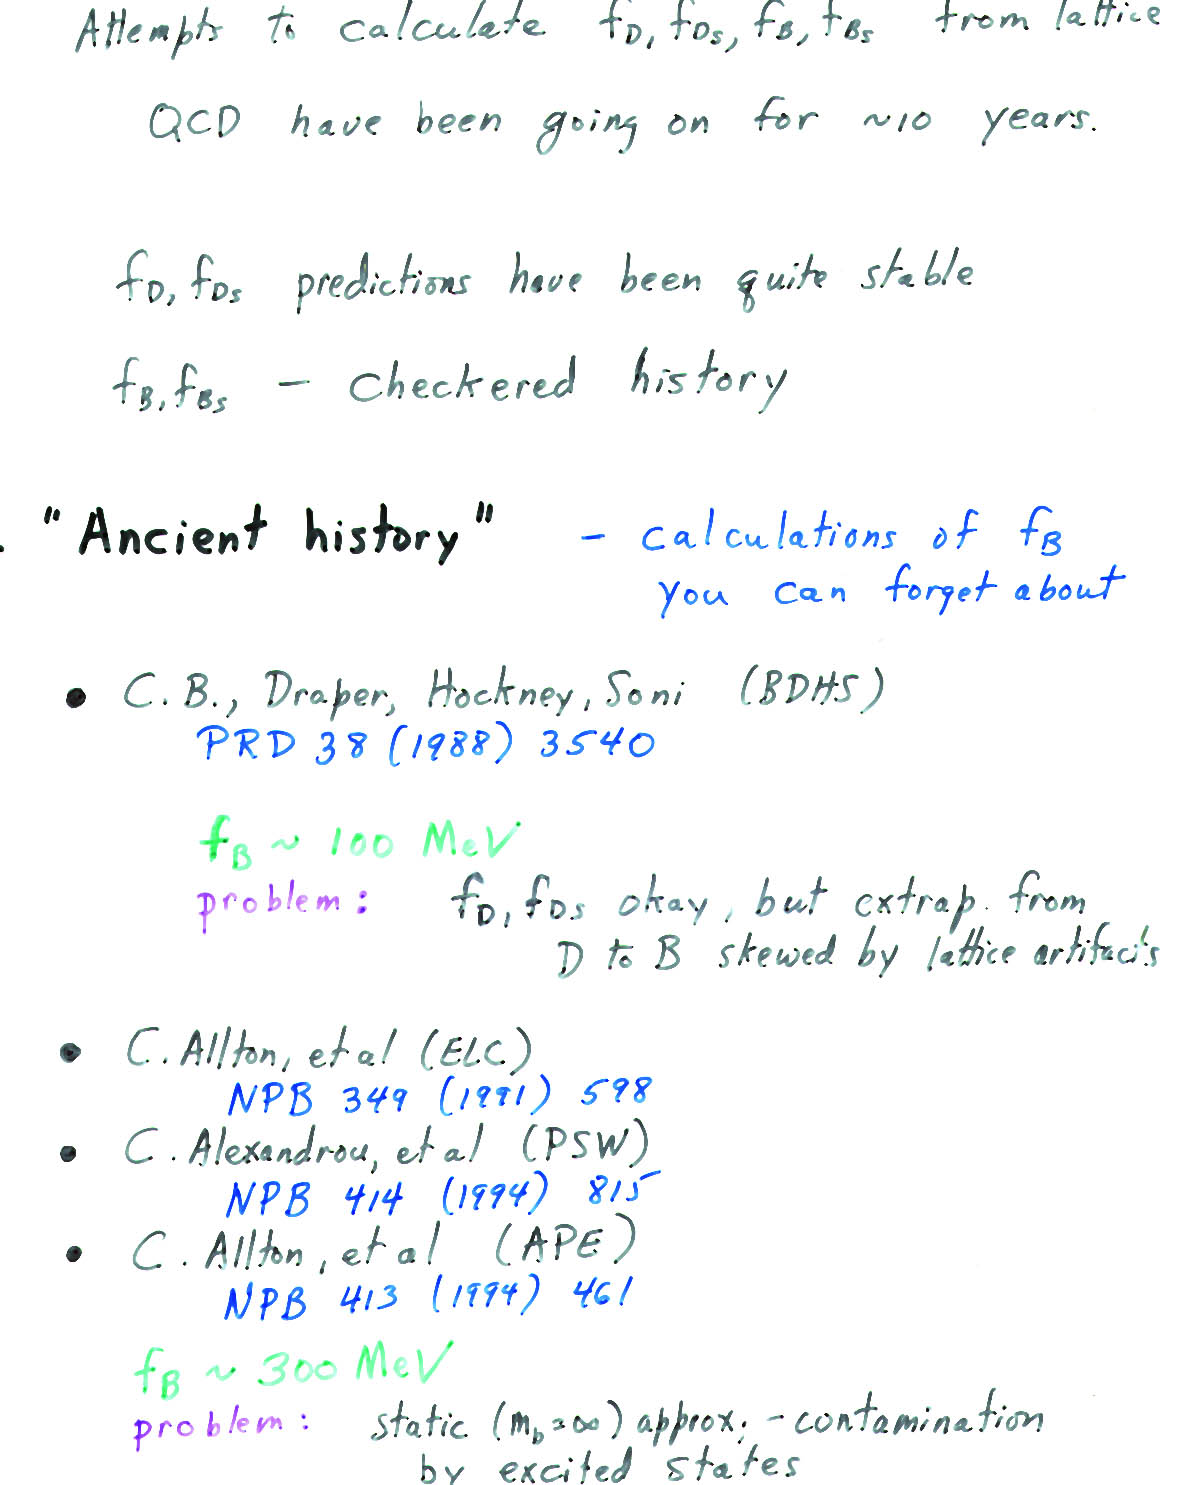 Attempts to calculate fD, fDs, fB, fBs from lattice
QCD have been going on for ~10 years.
fD, fDs predictions have been quite stable
fB, fBs — Checkered history
. "Ancient history" - calculations of fB
you can forget about
• C.B., Draper, Hockney, Soni (BDHS)
PRD 38 (1988) 3540
fB ~ 100 MeV
problem: fD, fDs okay, but extrap. from
D to B skewed by lattice artifacts
• C. Allton, et al (ELC)
NPB 349 (1991) 598
• C. Alexandrou, et al (PSW)
NPB 414 (1994) 815
• C. Allton, et al (APE)
NPB 413 (1994) 461
fB ~ 300 MeV
problem: static (mb=∞) approx; - contamination
by excited states